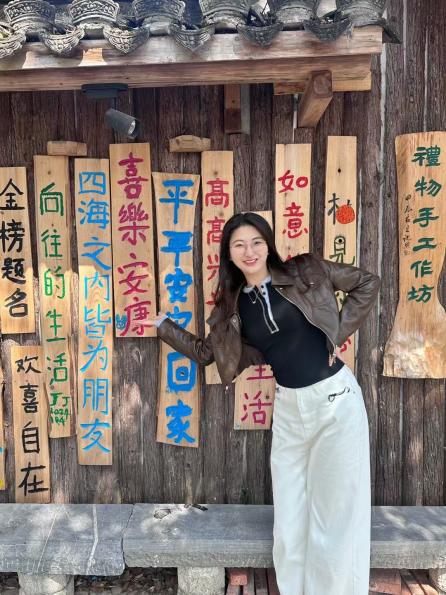 金榜題名
向往的生活
2024
四海之内皆为朋友
喜樂安康
平平安安回家
高高兴
如意
生活
禮物手工作坊
欢喜自在